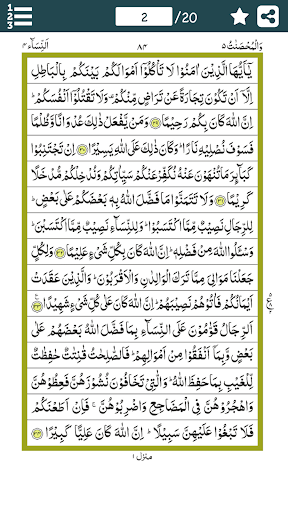 1
2
3
2
/20
وَالْمُحْصَنٰتُ ٥
٨٤
اَلنِّسَآء ٤
يٰٓاَيُّهَا الَّذِيْنَ اٰمَنُوْا لَا تَاْكُلُوْٓا اَمْوَالَكُمْ بَيْنَكُمْ بِالْبَاطِلِ
اِلَّآ اَنْ تَكُوْنَ تِجَارَةً عَنْ تَرَاضٍ مِّنْكُمْ ۟ وَلَا تَقْتُلُوْٓا اَنْفُسَكُمْ ؕ
اِنَّ اللّٰهَ كَانَ بِكُمْ رَحِيْمًا ﴿۲۹﴾ وَمَنْ يَّفْعَلْ ذٰلِكَ عُدْوَانًا وَّظُلْمًا
فَسَوْفَ نُصْلِيْهِ نَارًا ؕ وَكَانَ ذٰلِكَ عَلَى اللّٰهِ يَسِيْرًا ﴿۳۰﴾ اِنْ تَجْتَنِبُوْا
كَبَآئِرَ مَا تُنْهَوْنَ عَنْهُ نُكَفِّرْ عَنْكُمْ سَيِّاٰتِكُمْ وَنُدْخِلْكُمْ مُّدْخَلًا
كَرِيْمًا ﴿۳۱﴾ وَلَا تَتَمَنَّوْا مَا فَضَّلَ اللّٰهُ بِهٖ بَعْضَكُمْ عَلٰى بَعْضٍ ؕ
لِلرِّجَالِ نَصِيْبٌ مِّمَّا اكْتَسَبُوْا ؕ وَلِلنِّسَآءِ نَصِيْبٌ مِّمَّا اكْتَسَبْنَ ؕ
وَسْـَٔلُوا اللّٰهَ مِنْ فَضْلِهٖ ؕ اِنَّ اللّٰهَ كَانَ بِكُلِّ شَيْءٍ عَلِيْمًا ﴿۳۲﴾ وَلِكُلٍّ
جَعَلْنَا مَوَالِيَ مِمَّا تَرَكَ الْوَالِدٰنِ وَالْاَقْرَبُوْنَ ؕ وَالَّذِيْنَ عَقَدَتْ
اَيْمَانُكُمْ فَاٰتُوْهُمْ نَصِيْبَهُمْ ؕ اِنَّ اللّٰهَ كَانَ عَلٰى كُلِّ شَيْءٍ شَهِيْدًا ﴿۳۳﴾
اَلرِّجَالُ قَوّٰمُوْنَ عَلَى النِّسَآءِ بِمَا فَضَّلَ اللّٰهُ بَعْضَهُمْ عَلٰى
بَعْضٍ وَّبِمَآ اَنْفَقُوْا مِنْ اَمْوَالِهِمْ ؕ فَالصّٰلِحٰتُ قٰنِتٰتٌ حٰفِظٰتٌ
لِّلْغَيْبِ بِمَا حَفِظَ اللّٰهُ ؕ وَالّٰتِيْ تَخَافُوْنَ نُشُوْزَهُنَّ فَعِظُوْهُنَّ
وَاهْجُرُوْهُنَّ فِي الْمَضَاجِعِ وَاضْرِبُوْهُنَّ ۚ فَاِنْ اَطَعْنَكُمْ
فَلَا تَبْغُوْا عَلَيْهِنَّ سَبِيْلًا ؕ اِنَّ اللّٰهَ كَانَ عَلِيًّا كَبِيْرًا ﴿۳۴﴾
منزل ١